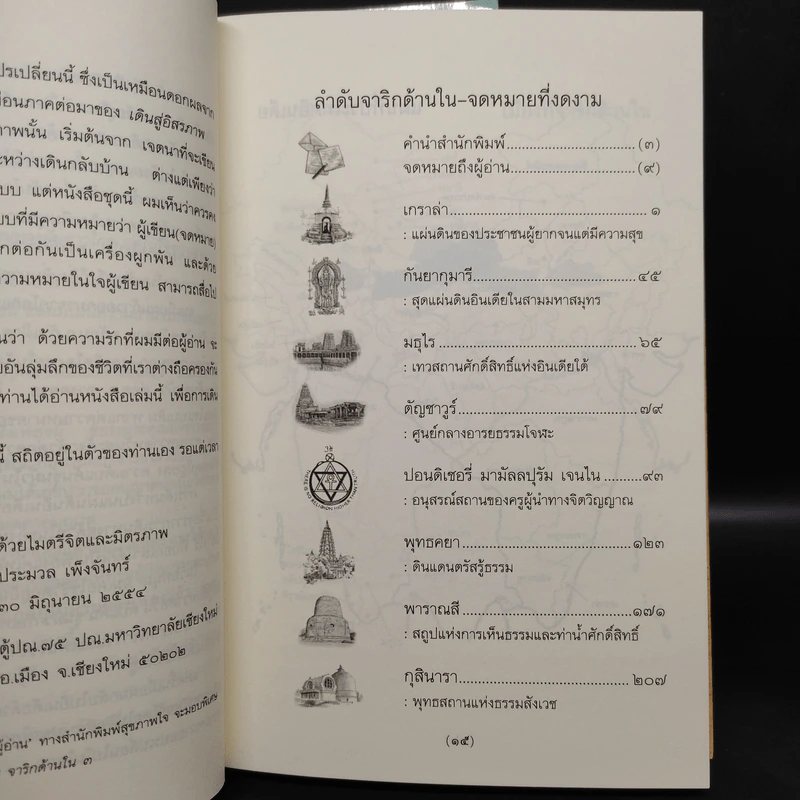 ปรเปลี่ยนนี้ ซึ่งเป็นเหมือนดอกผลจาก
อนภาคต่อมาของ เดินสู่อิสรภาพ
าพนั้น เริ่มต้นจาก เจตนาที่จะเขียน
ะหว่างเดินกลับบ้าน ต่างแต่เพียงว่า
บบ แต่หนังสือชุดนี้ ผมเห็นว่าควรคง
บบที่มีความหมายว่า ผู้เขียน(จดหมาย)
กต่อกันเป็นเครื่องผูกพัน และด้วย
วามหมายในใจผู้เขียน สามารถสื่อไป
นว่า ด้วยความรักที่ผมมีต่อผู้อ่าน จะ
อันลุ่มลึกของชีวิตที่เราต่างถือครองกัน
ท่านได้อ่านหนังสือเล่มนี้ เพื่อการเดิน
นี้ สถิตอยู่ในตัวของท่านเอง รอแต่เวลา
ด้วยไมตรีจิตและมิตรภาพ
ประมวล เพ็งจันทร์
๓๐ มิถุนายน ๒๕๕๔
ตู้ปณ.๗๕ ปณ.มหาวิทยาลัยเชียงใหม่
อ.เมือง จ.เชียงใหม่ ๕๐๒๐๒
ผู้อ่าน" ทางสำนักพิมพ์สุขภาพใจ จะมอบพิเศษ
จาริกด้านใน ๓
ลำดับจาริกด้านใน-จดหมายที่งดงาม
คำนำสำนักพิมพ์.....................(๓)
จดหมายถึงผู้อ่าน.....................(๙)
เกราล่า.....................๑
: แผ่นดินของประชาชนผู้ยากจนแต่มีความสุข
กันยากุมารี.....................๔๕
: สุดแผ่นดินอินเดียในสามมหาสมุทร
มธุไร.....................๖๕
: เทวสถานศักดิ์สิทธิ์แห่งอินเดียใต้
ตัญชาวูร์.....................๗๙
: ศูนย์กลางอารยธรรมโจฬะ
ปอนดิเชอรี่ มามัลลปุรัม เจนไน ..........๙๓
: อนุสรณ์สถานของครูผู้นำทางจิตวิญญาณ
พุทธคยา.....................๑๒๓
: ดินแดนตรัสรู้ธรรม
พาราณสี.....................๑๗๑
: สถูปแห่งการเห็นธรรมและท่าน้ำศักดิ์สิทธิ์
กุสินารา.....................๒๐๗
: พุทธสถานแห่งธรรมสังเวช
(๑๕)